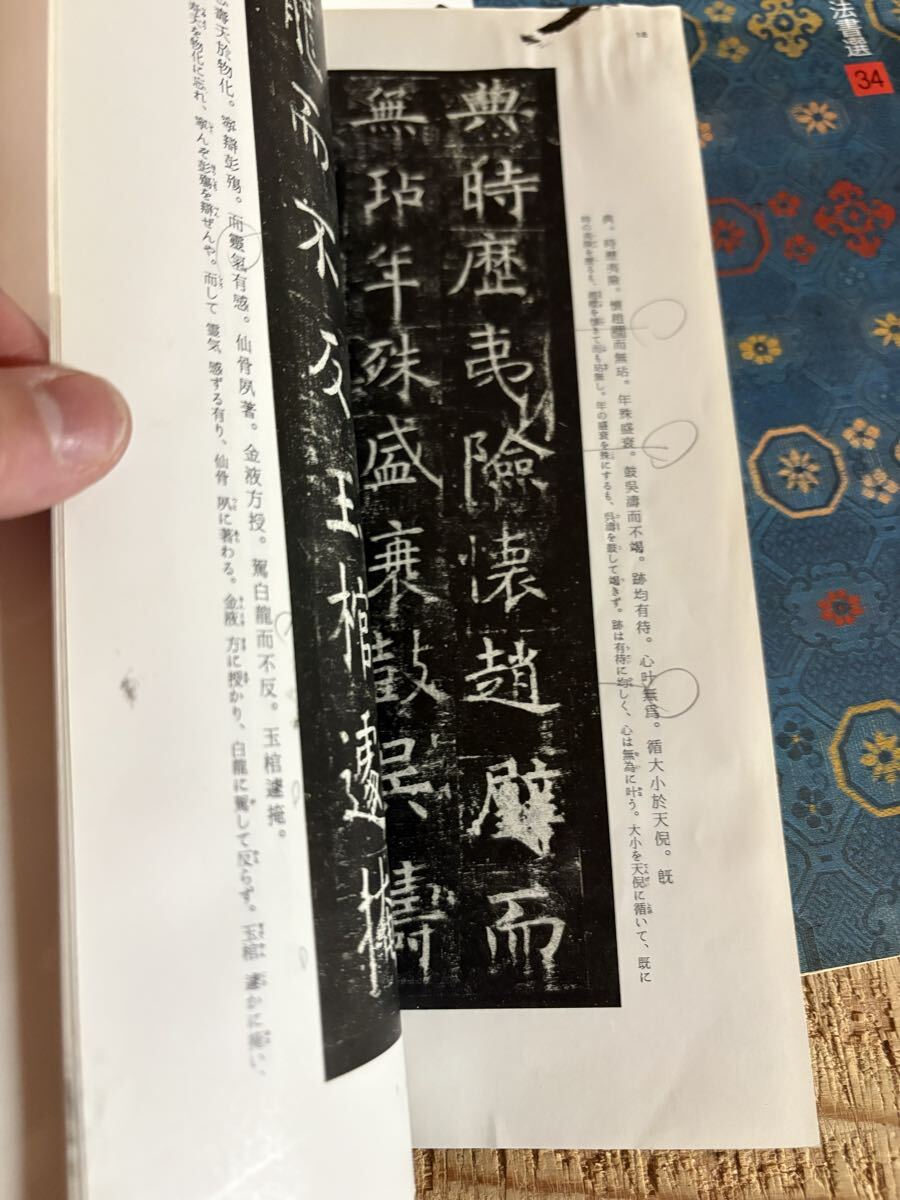 法書選
34
18
典。時歴夷險。懷趙璧而無玷。年殊盛衰。鼓吳濤而不竭。跡均有待。心叶無爲。循大小於天倪。旣
時の夷険を歴るも、趙璧を懐きて而も玷無し。年の盛衰を殊にするも、呉濤を鼓して竭きず。跡は有待に均しく、心は無為に叶う。大小を天倪に循いて、既に
典時歴夷險懐趙璧而
無玷年殊盛衰鼓吳濤
龍而不反玉棺遽掩
壽夭於物化。孰辯彭殤。而靈氣有感。仙骨夙著。金液方授。駕白龍而不反。玉棺遽掩。
寿夭を物化に忘れ、孰んぞ彭殤を辯ぜんや。而して靈気感ずる有り、仙骨夙に著わる。金液方に授かり、白龍に駕して反らず。玉棺遽かに掩い、